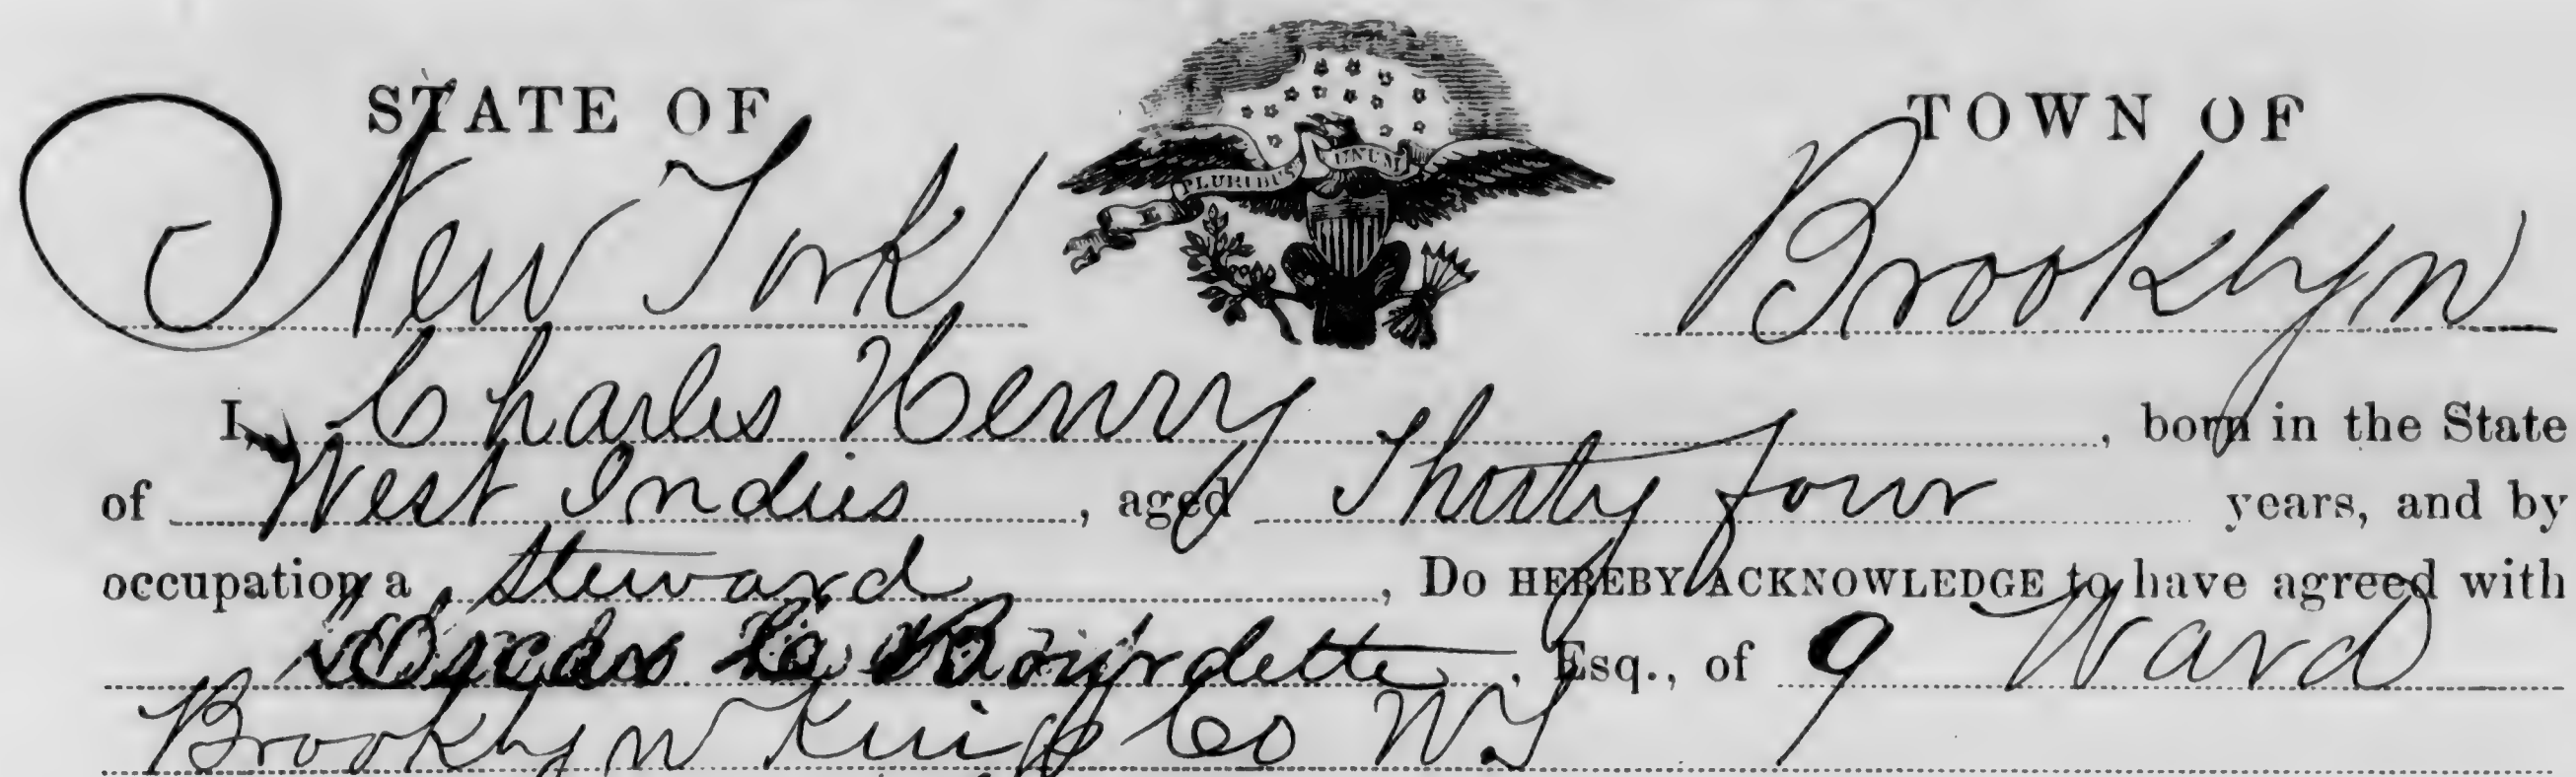 STATE OF TOWN OF
E PLURIBUS UNUM
New York Brooklyn
I, Charles Henry, born in the State
of West Indies, aged Thirty four years, and by
occupation a Steward, Do HEREBY ACKNOWLEDGE to have agreed with
Burdette, Esq., of 9 Ward
Brooklyn Kings Co NY